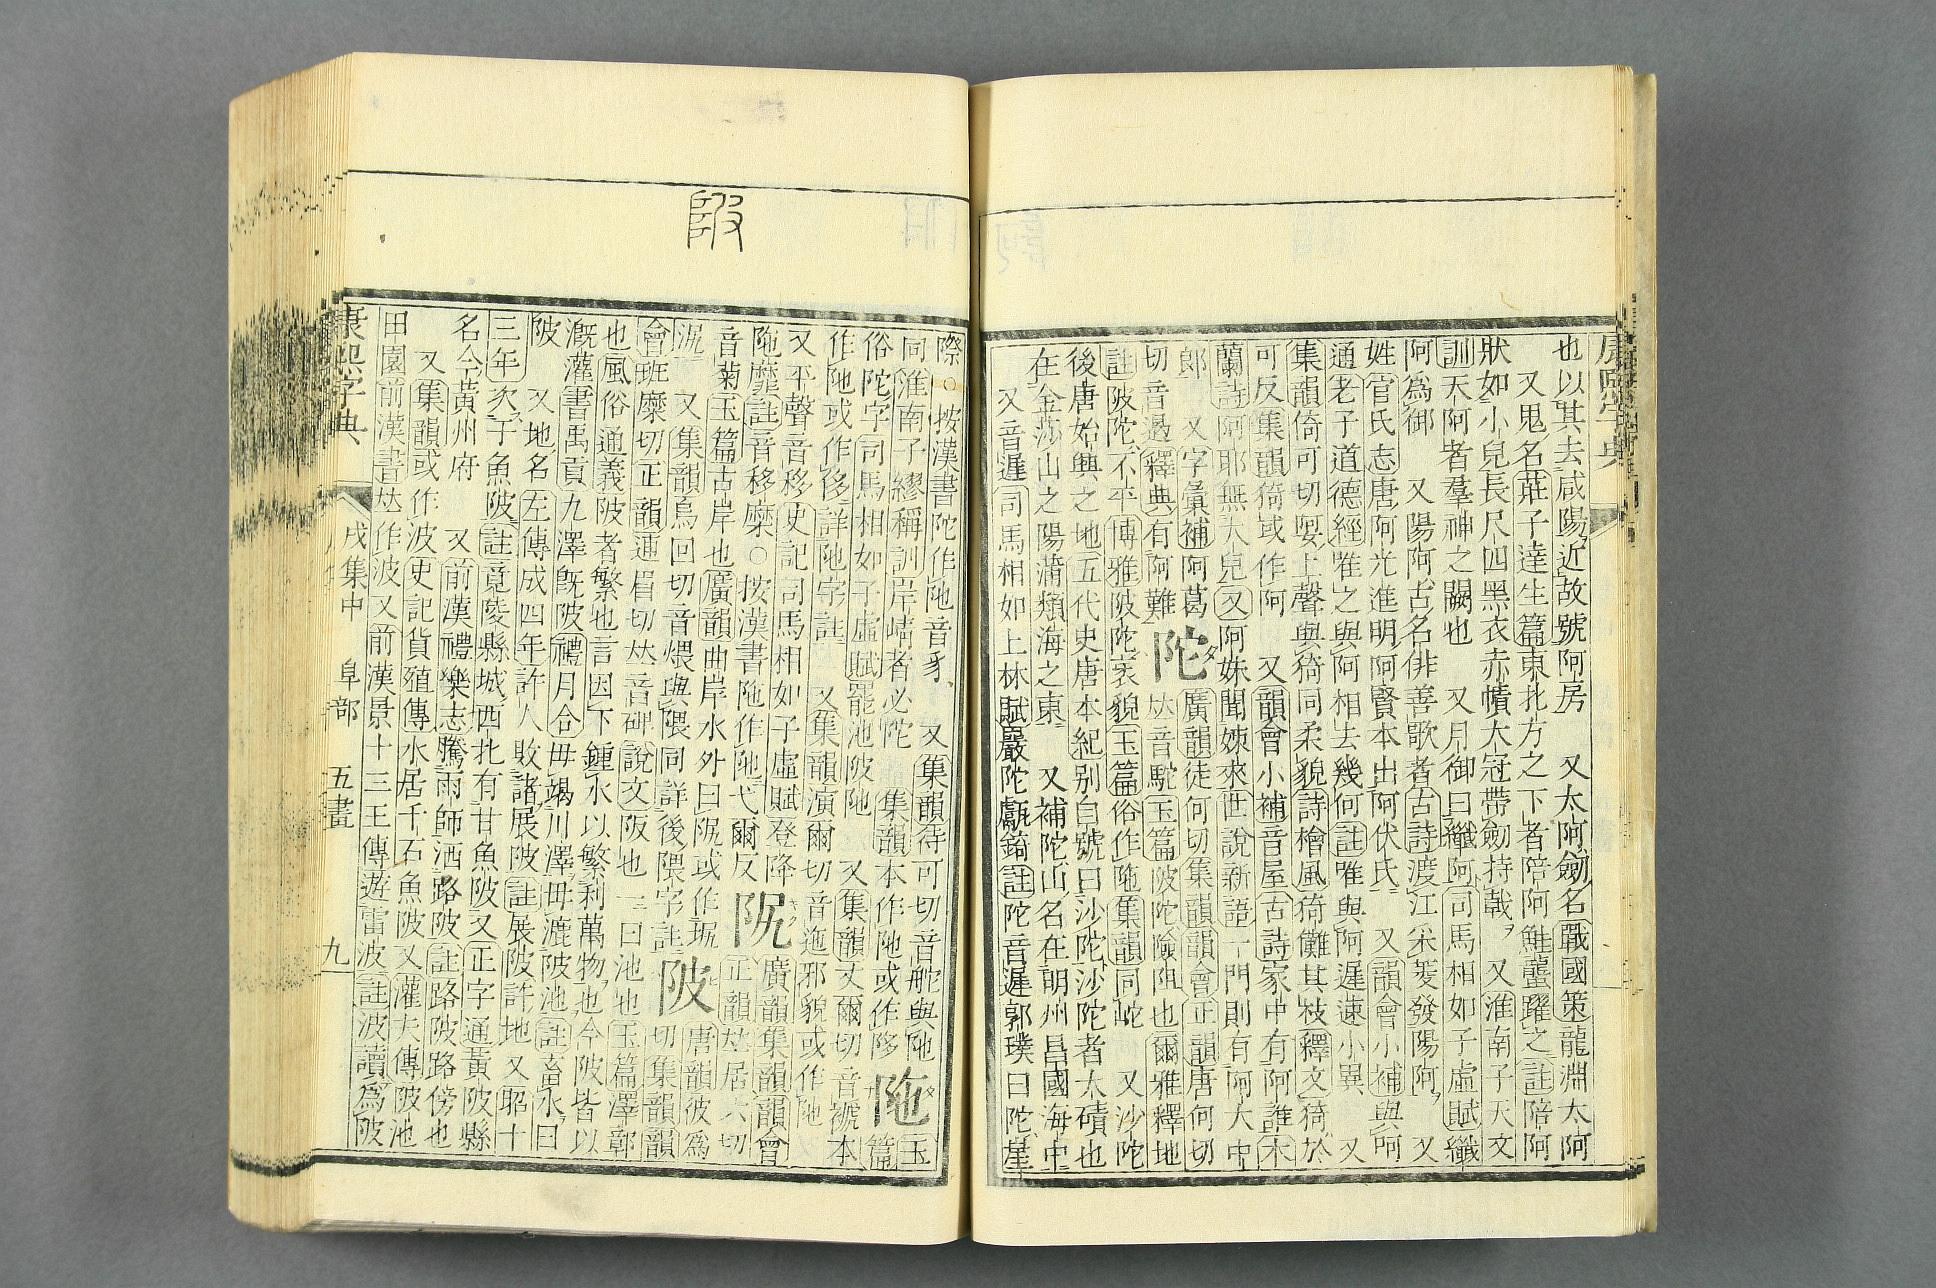 也以其去咸陽近故號阿房　又太阿劒名戰國策龍淵太阿
又鬼名莊子達生篇東北方之下者陪阿鮭蠪躍之註陪阿
狀如小兒長尺四黑衣赤幘大冠帶劒持戟　又淮南子天文
訓天阿者羣神之闕也　又月御曰纖阿司馬相如子虛賦纖
阿爲御　又陽阿古名俳善歌者古詩渡江采菱發陽阿　又
姓官氏志唐阿光進明阿賢本出阿伏氏　又韻會小補與呵
通老子道德經唯之與阿相去幾何註唯與阿遲速小異　又
集韻倚可切娿上聲與猗同柔貌詩檜風猗儺其枝釋文猗於
可反集韻猗或作阿　又韻會小補音屋古詩家中有阿誰木
蘭詩阿耶無大兒又阿妹聞姊來世說新語一門則有阿大中
郎　又字彙補阿葛
切音遏釋典有阿難
陀
廣韻徒何切集韻韻會正韻唐何切
𠀤音駝玉篇陂陀險阻也爾雅釋地
註陂陀不平博雅陂陀衺貌玉篇俗作陁集韻同岮　又沙陀
後唐始興之地五代史唐本紀別自號曰沙陀沙陀者大磧也
在金莎山之陽蒲類海之東　又補陀山名在明州昌國海中
又音遲司馬相如上林賦巖陀甗錡註陀音遲郭璞曰陀崖
際○按漢書陀作陁音豸　又集韻待可切音舵與陁
同淮南子繆稱訓岸崝者必陀　集韻本作陁或作陊
陁
玉篇
俗陀字司馬相如子虛賦罷池陂陁　又集韻丈爾切音褫本
作阤或作陊詳阤字註　又集韻演爾切音迤邪貌或作阤
又平聲音移史記司馬相如子虛賦登降
陁靡註音移糜○按漢書陁作阤弋爾反
阸
廣韻集韻韻會
正韻𠀤居六切
音菊玉篇古岸也廣韻曲岸水外曰阸或作坭
又集韻烏回切音煨與隈同詳後隈字註
陂
唐韻彼爲
切集韻韻
會班糜切正韻逋眉切𠀤音碑說文阪也一曰池也玉篇澤鄣
也風俗通義陂者繁也言因下鍾水以繁利萬物也今陂皆以
漑灌書禹貢九澤旣陂禮月令毋竭川澤毋漉陂池註畜水曰
陂　又地名左傳成四年許人敗諸展陂註展陂許地　又昭十
三年次于魚陂註竟陵縣城西北有甘魚陂又正字通黃陂縣
名今黃州府　又前漢禮樂志騰雨師洒路陂註路陂路傍也
又集韻或作波史記貨殖傳水居千石魚陂又灌夫傳陂池
田園前漢書𠀤作波又前漢景十三王傳遊雷波註波讀爲陂
康熙字典
戌集中　阜部　五畫
九